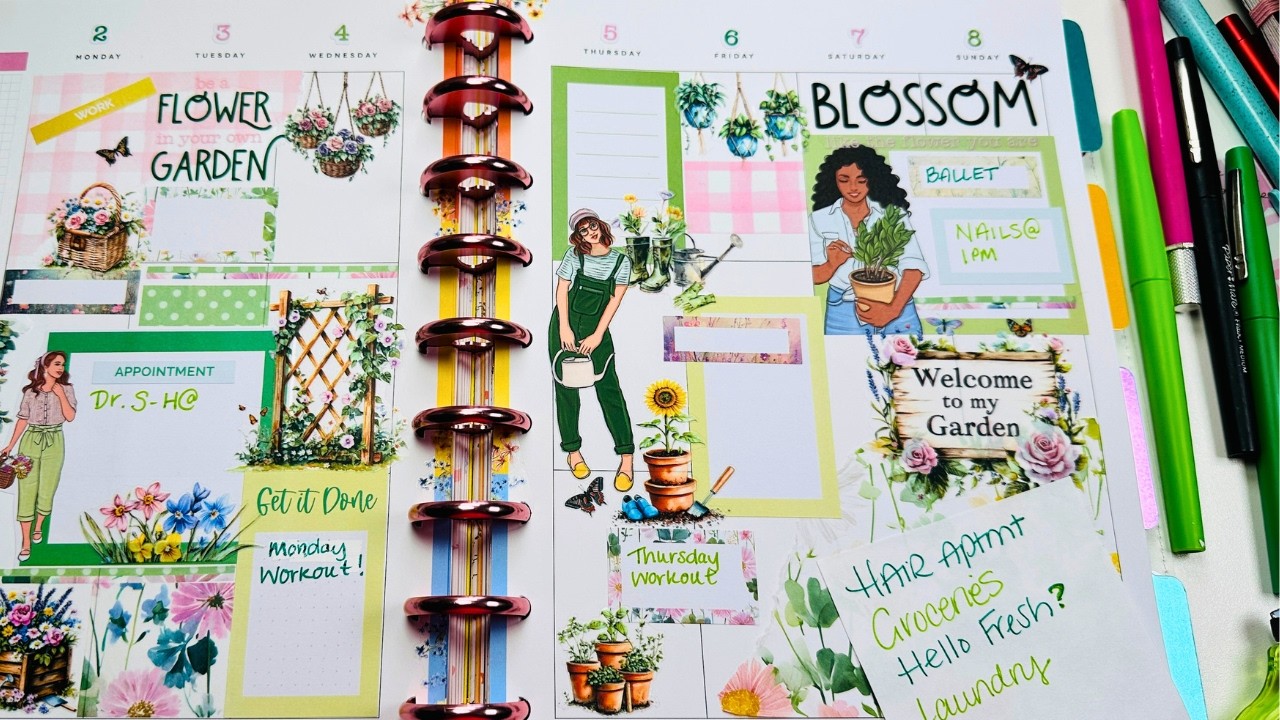 2
MONDAY
3
TUESDAY
4
WEDNESDAY
WORK
be a
FLOWER
in your own
GARDEN
APPOINTMENT
Dr. S-H@
Get it Done
Monday
Workout!
5
THURSDAY
6
FRIDAY
7
SATURDAY
8
SUNDAY
BLOSSOM
like the flower you are
BALLET
NAILS@
1PM
Welcome
to my
Garden
Thursday
Workout
HAIR APTMT
Groceries
Hello Fresh?
Laundry